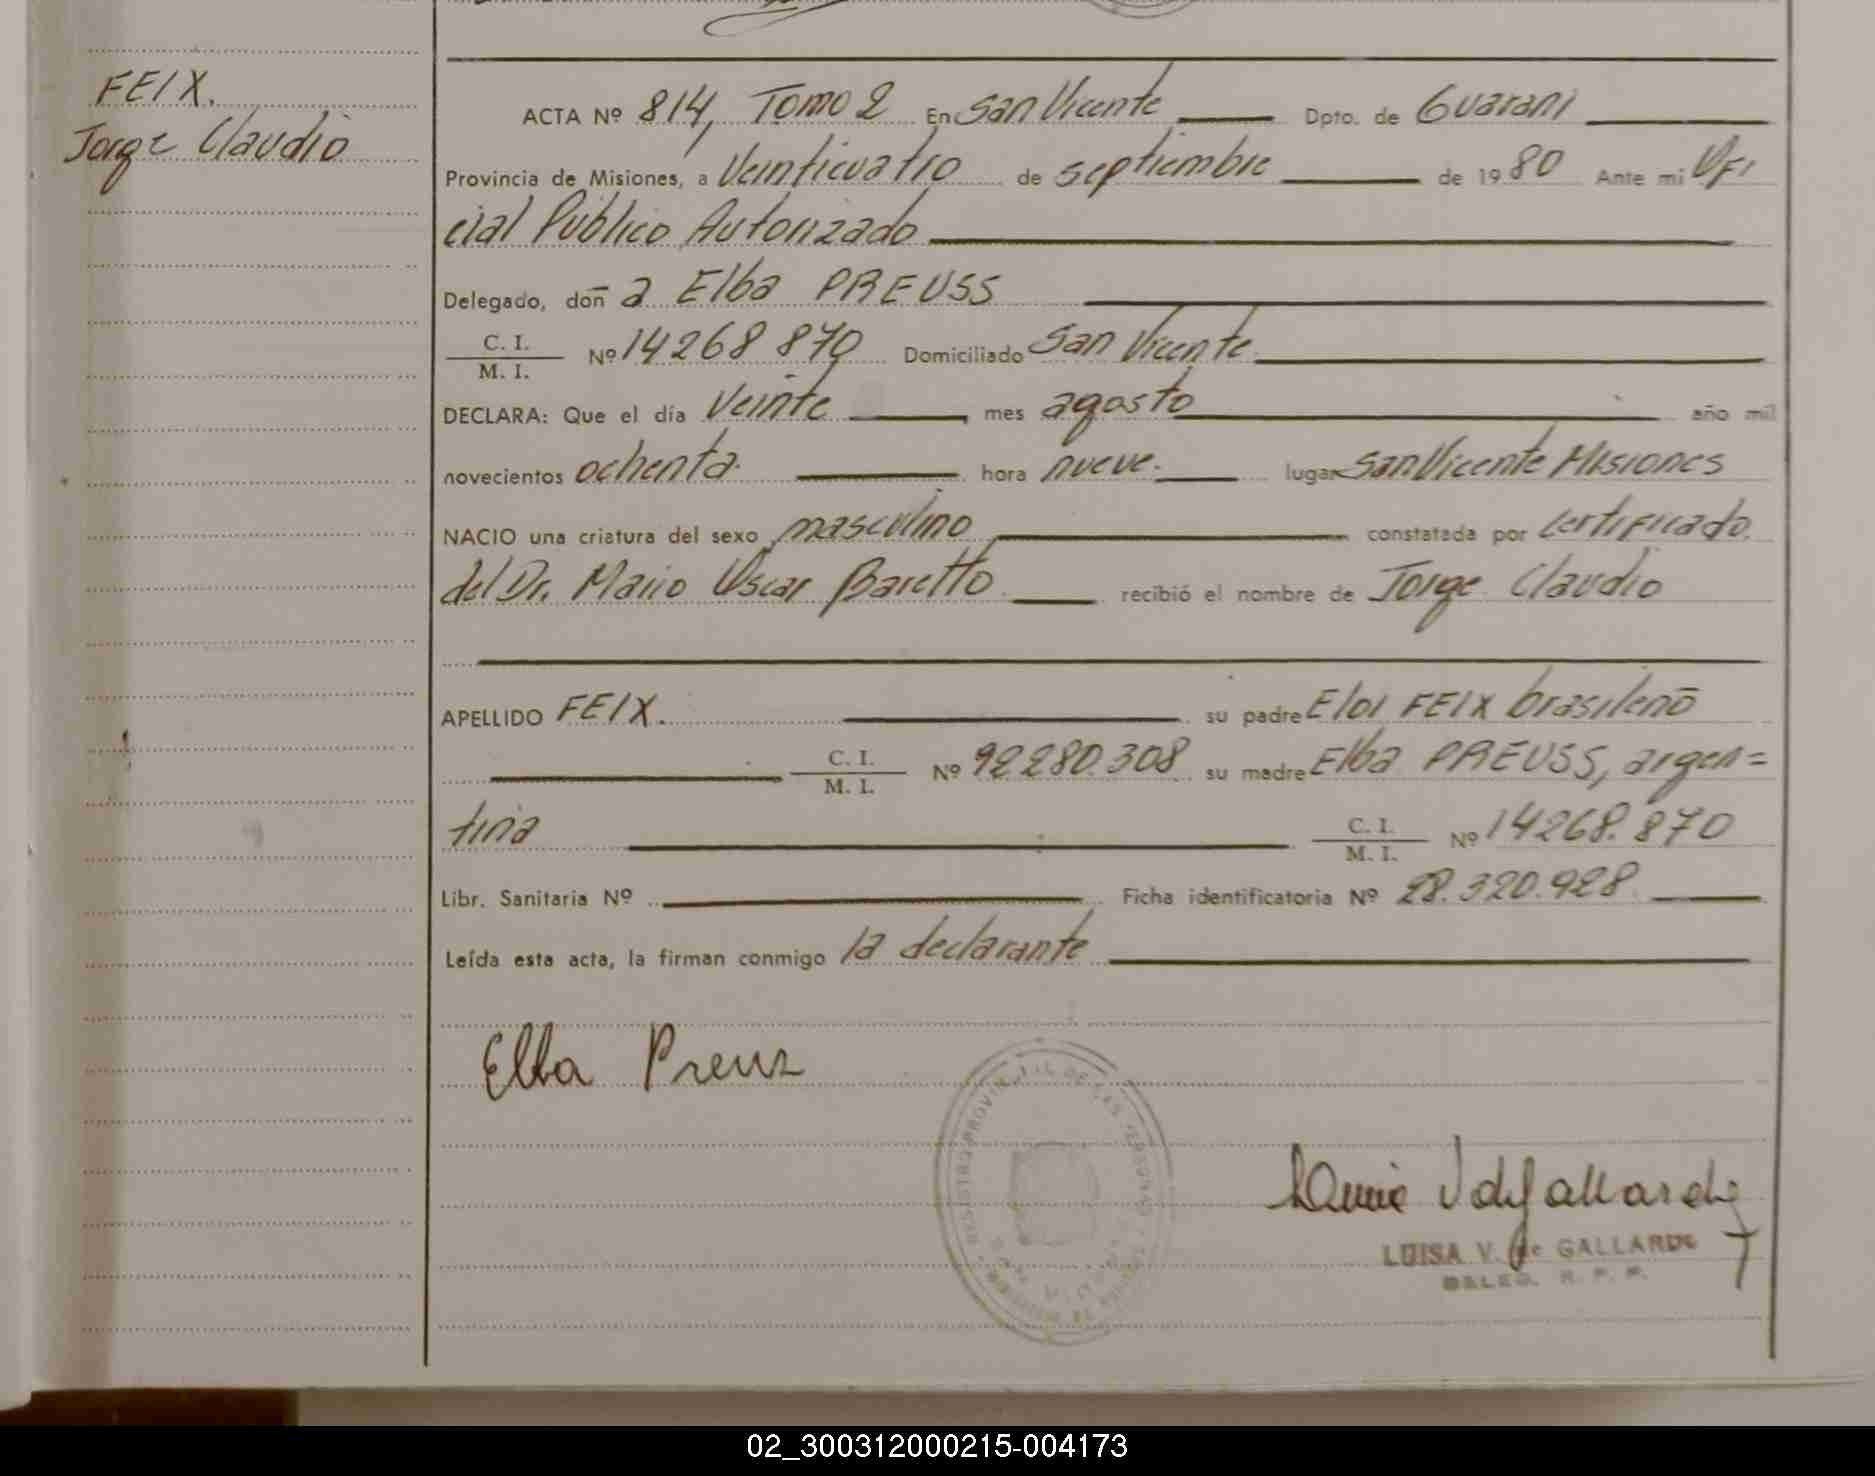 FEIX.
Jorge Claudio
ACTA Nº 814, Tomo 2 En San Vicente Dpto. de Guarani
Provincia de Misiones, a Veinticuatro de septiembre de 1980 Ante mi Ofi
cial Público Autorizado
Delegado, don a Elba PREUSS
C. I.
M. I. Nº 14268870 Domiciliado San Vicente
DECLARA: Que el día Veinte mes agosto año mil
novecientos ochenta. hora nueve. lugar San Vicente Misiones
NACIO una criatura del sexo masculino constatada por certificado
del Dr. Mario Oscar Baretto recibió el nombre de Jorge Claudio
APELLIDO FEIX. su padre Eloi FEIX brasileño
C. I.
M. I. Nº 92280.308 su madre Elba PREUSS, argen=
tina C. I.
M. I. Nº 14268.870
Libr. Sanitaria Nº Ficha identificatoria Nº 28.320.928
Leída esta acta, la firman conmigo la declarante
Elba Preuz
LUISA V. de GALLARDO
DELEG. R. P. P.
02_300312000215-004173